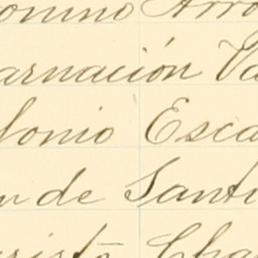 onino Arro
arnación Va
lonio Esca
n de Santi
cristo Cha